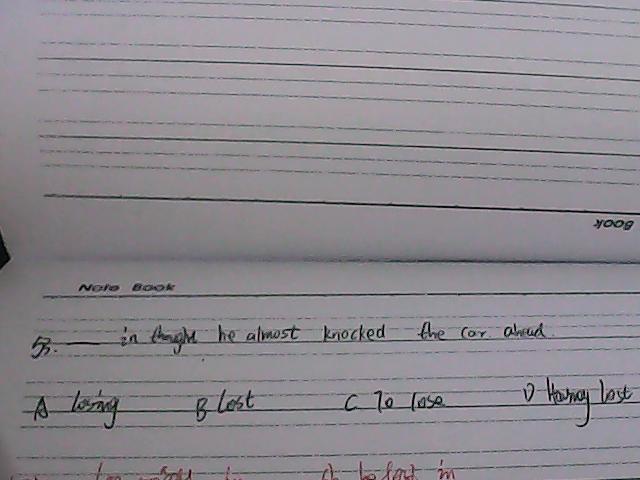 BOOK
Note Book
55. ____ in thought he almost knocked the car ahead.
A losing B lost C To lose D Having lost
be lost in